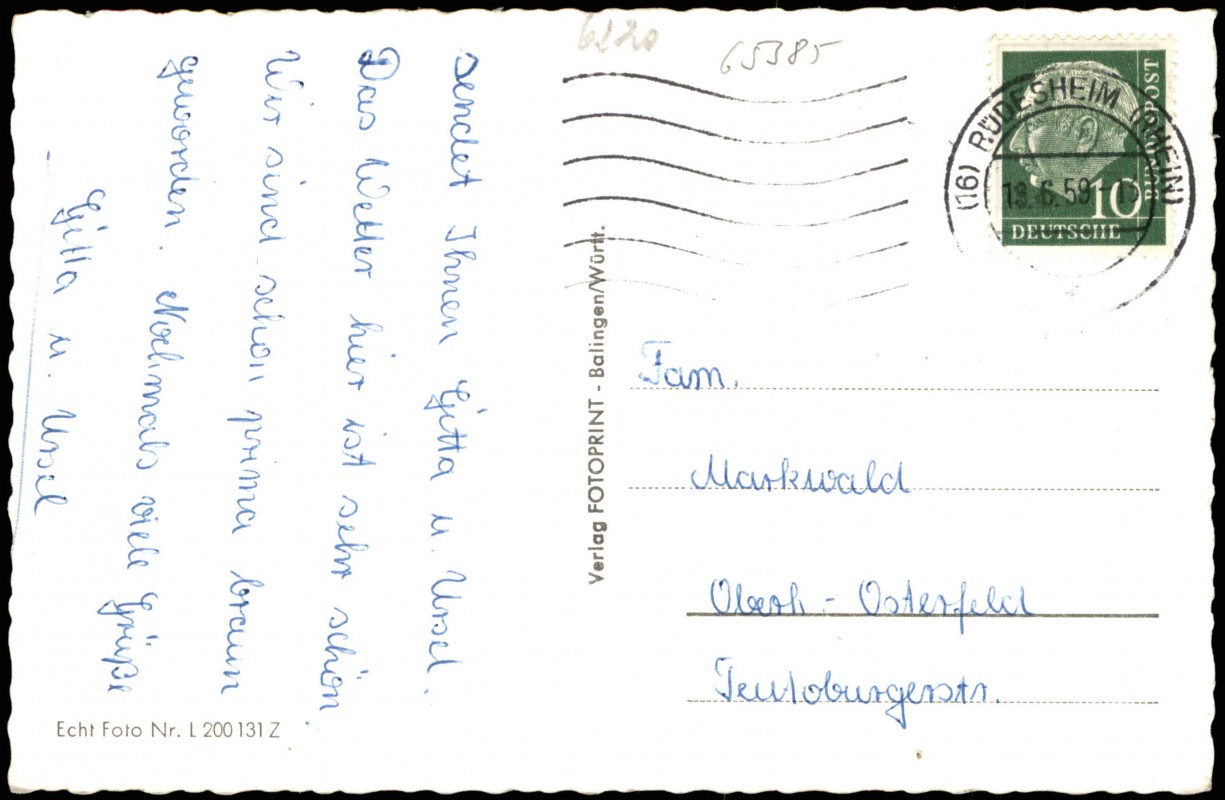 sendet Ihnen Gitta u. Ursel.
Das Wetter hier ist sehr schön.
Wir sind schon prima braun
geworden. Nochmals viele Grüße
Gitta u. Ursel
Echt Foto Nr. L 200131Z
Verlag FOTOPRINT - Balingen/Württ.
6220
65385
(16) RÜDESHEIM (RHEIN)
DEUTSCHE
BUNDESPOST
10
Fam.
Markwald
Oberh.-Osterfeld
Teutoburgerstr.